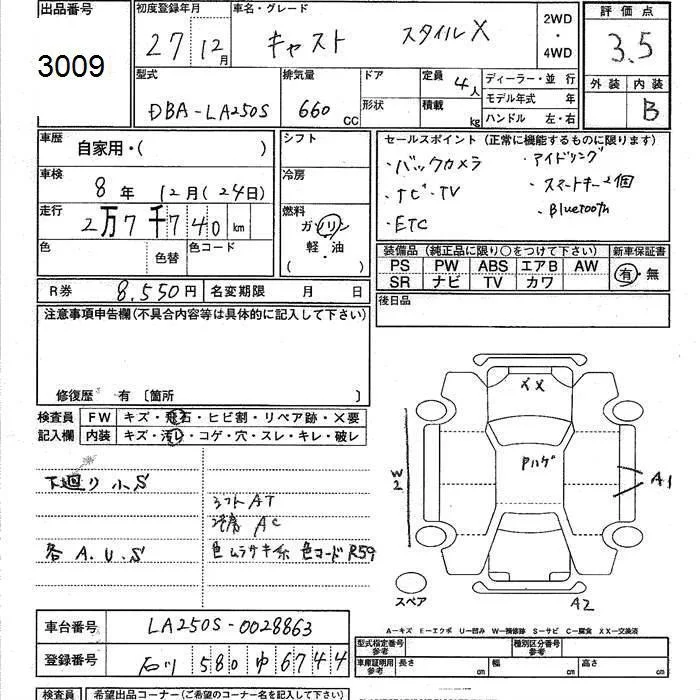 出品番号
3009
初度登録年月
27 12月
車名・グレード
キャスト スタイルX
2WD
・
4WD
評価点
3.5
外装 内装
B
型式
DBA-LA250S
排気量
660 CC
ドア
形状
定員 4人
積載 kg
ディーラー・並 行
モデル年式 年
ハンドル 左・右
車歴
自家用・( )
車検
8年 12月(24日)
走行
2万7千740 km
色 色替 色コード
シフト
冷房
燃料
ガソリン
・
軽・油
( )
セールスポイント (正常に機能するものに限ります)
・バックカメラ ・アイドリング
・ナビ・TV ・スマートキー2個
・ETC ・Bluetooth
装備品 (純正品に限り○をつけて下さい)
PS PW ABS エアB AW
SR ナビ TV カワ
新車保証書
有・無
後日品
R券 8,550円 名変期限 月 日
注意事項申告欄(不具合内容等は具体的に記入して下さい)
修復歴 有 〔箇所 〕
検査員
記入欄
FW キズ・飛石・ヒビ割・リペア跡・X要
内装 キズ・汚レ・コゲ・穴・スレ・キレ・破レ
下廻り小S
シフトAT
冷房 AC
各A.U.S 色ムラサキ系 色コードR59
W2
Pハゲ
A1
A2
スペア
A―キズ E―エクボ U―凹み W―補修跡 S―サビ C―腐食 XX―交換済
車台番号 LA250S-0028863
登録番号 石川 580 ゆ 6744
型式指定番号
参考
種別区分番号
参考
車庫証明用
参考
長さ cm 幅 cm 高さ cm
検査員 希望出品コーナー(ご希望のコーナー名を記入下さい)